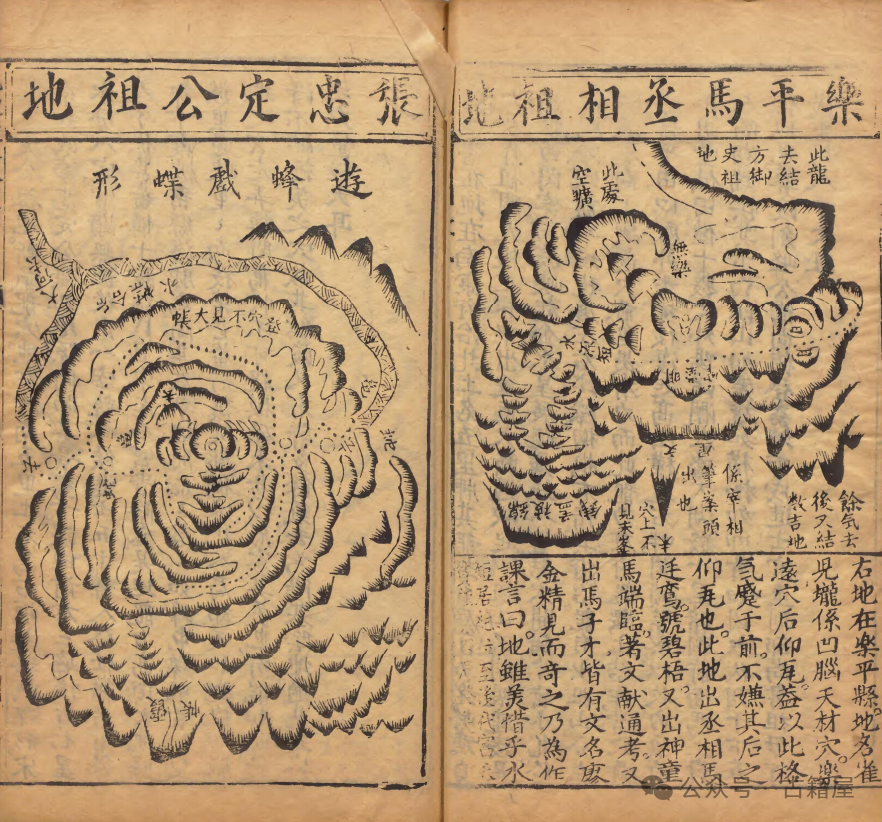 樂平馬丞相祖地
此龍
去結
方御
史祖
地
此處
空曠
明堂
係宰相
筆案頭
出也
穴上不
見未峯
餘氣去
後又結
数吉地
右地在楽平縣地名雀
児壠係凹腦天材穴楽
遠穴后仰瓦盖以此格
气蹙于前不嫌其后之
仰瓦也此地出丞相馬
廷鸞號碧梧又出神童
馬端臨著文献通考又
出馬子才皆有文名廖
金精見而奇之乃為作
課言曰地雖美惜乎水
至後代官
張忠定公祖地
遊蜂戲蝶形
登穴不見大帳
霞帳
公众号 古籍屋